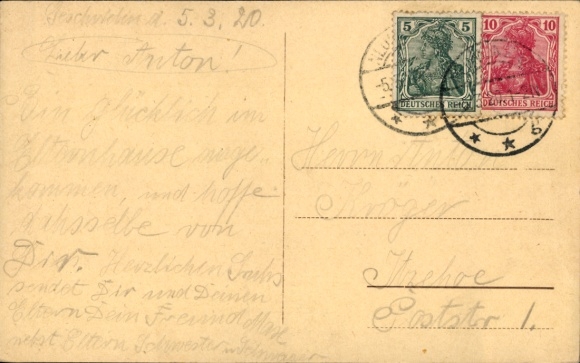 d. 5.3.20.
Lieber Anton!
Bin glücklich im
Elternhause ange-
kommen, und hoffe
dasselbe von
Dir. Herzlichen
sendet Dir und Deinen
Eltern Dein Freund
nebst Eltern Schwester u. Schwager
5 5
DEUTSCHES REICH
10 10
DEUTSCHES REICH
Herrn Anton
Kröger
Itzehoe
Poststr 1.